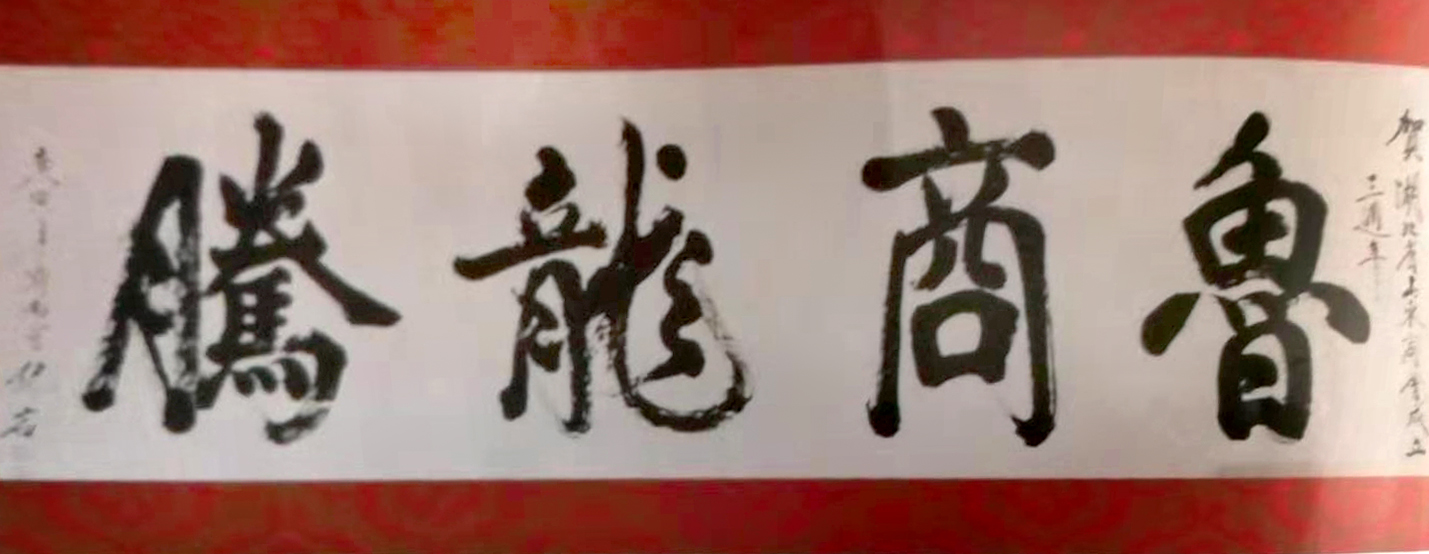 賀湖北省山東商會成立
三週年
魯商龍騰